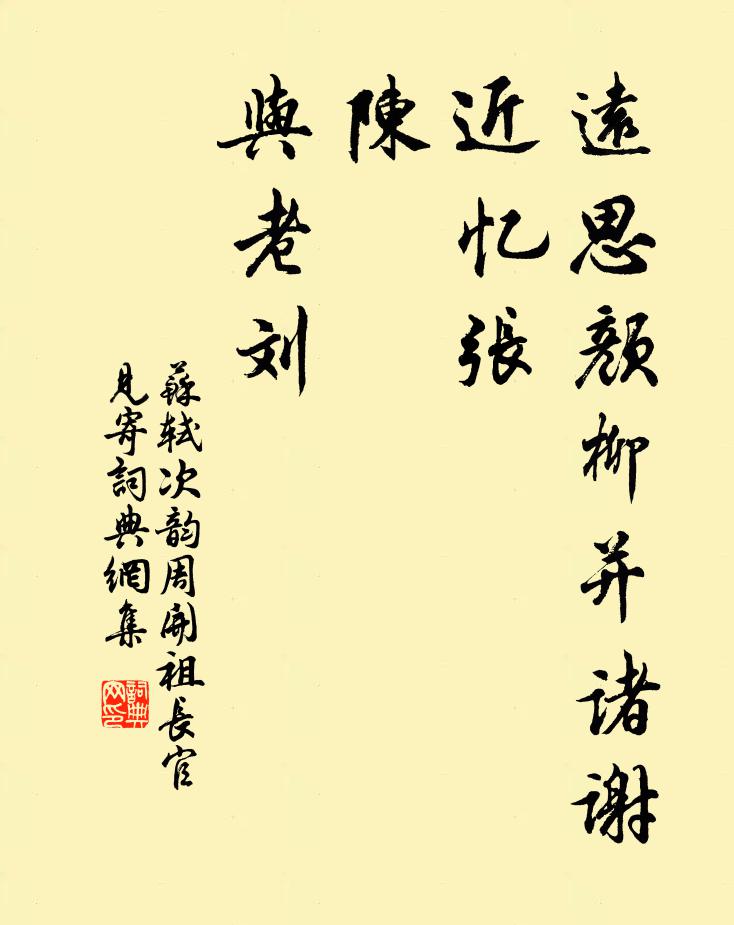 遠思顔柳并諸謝
近忆張
陳
與老刘
蘇軾次韵周開祖長官
見寄詞典網集
詞典
网印